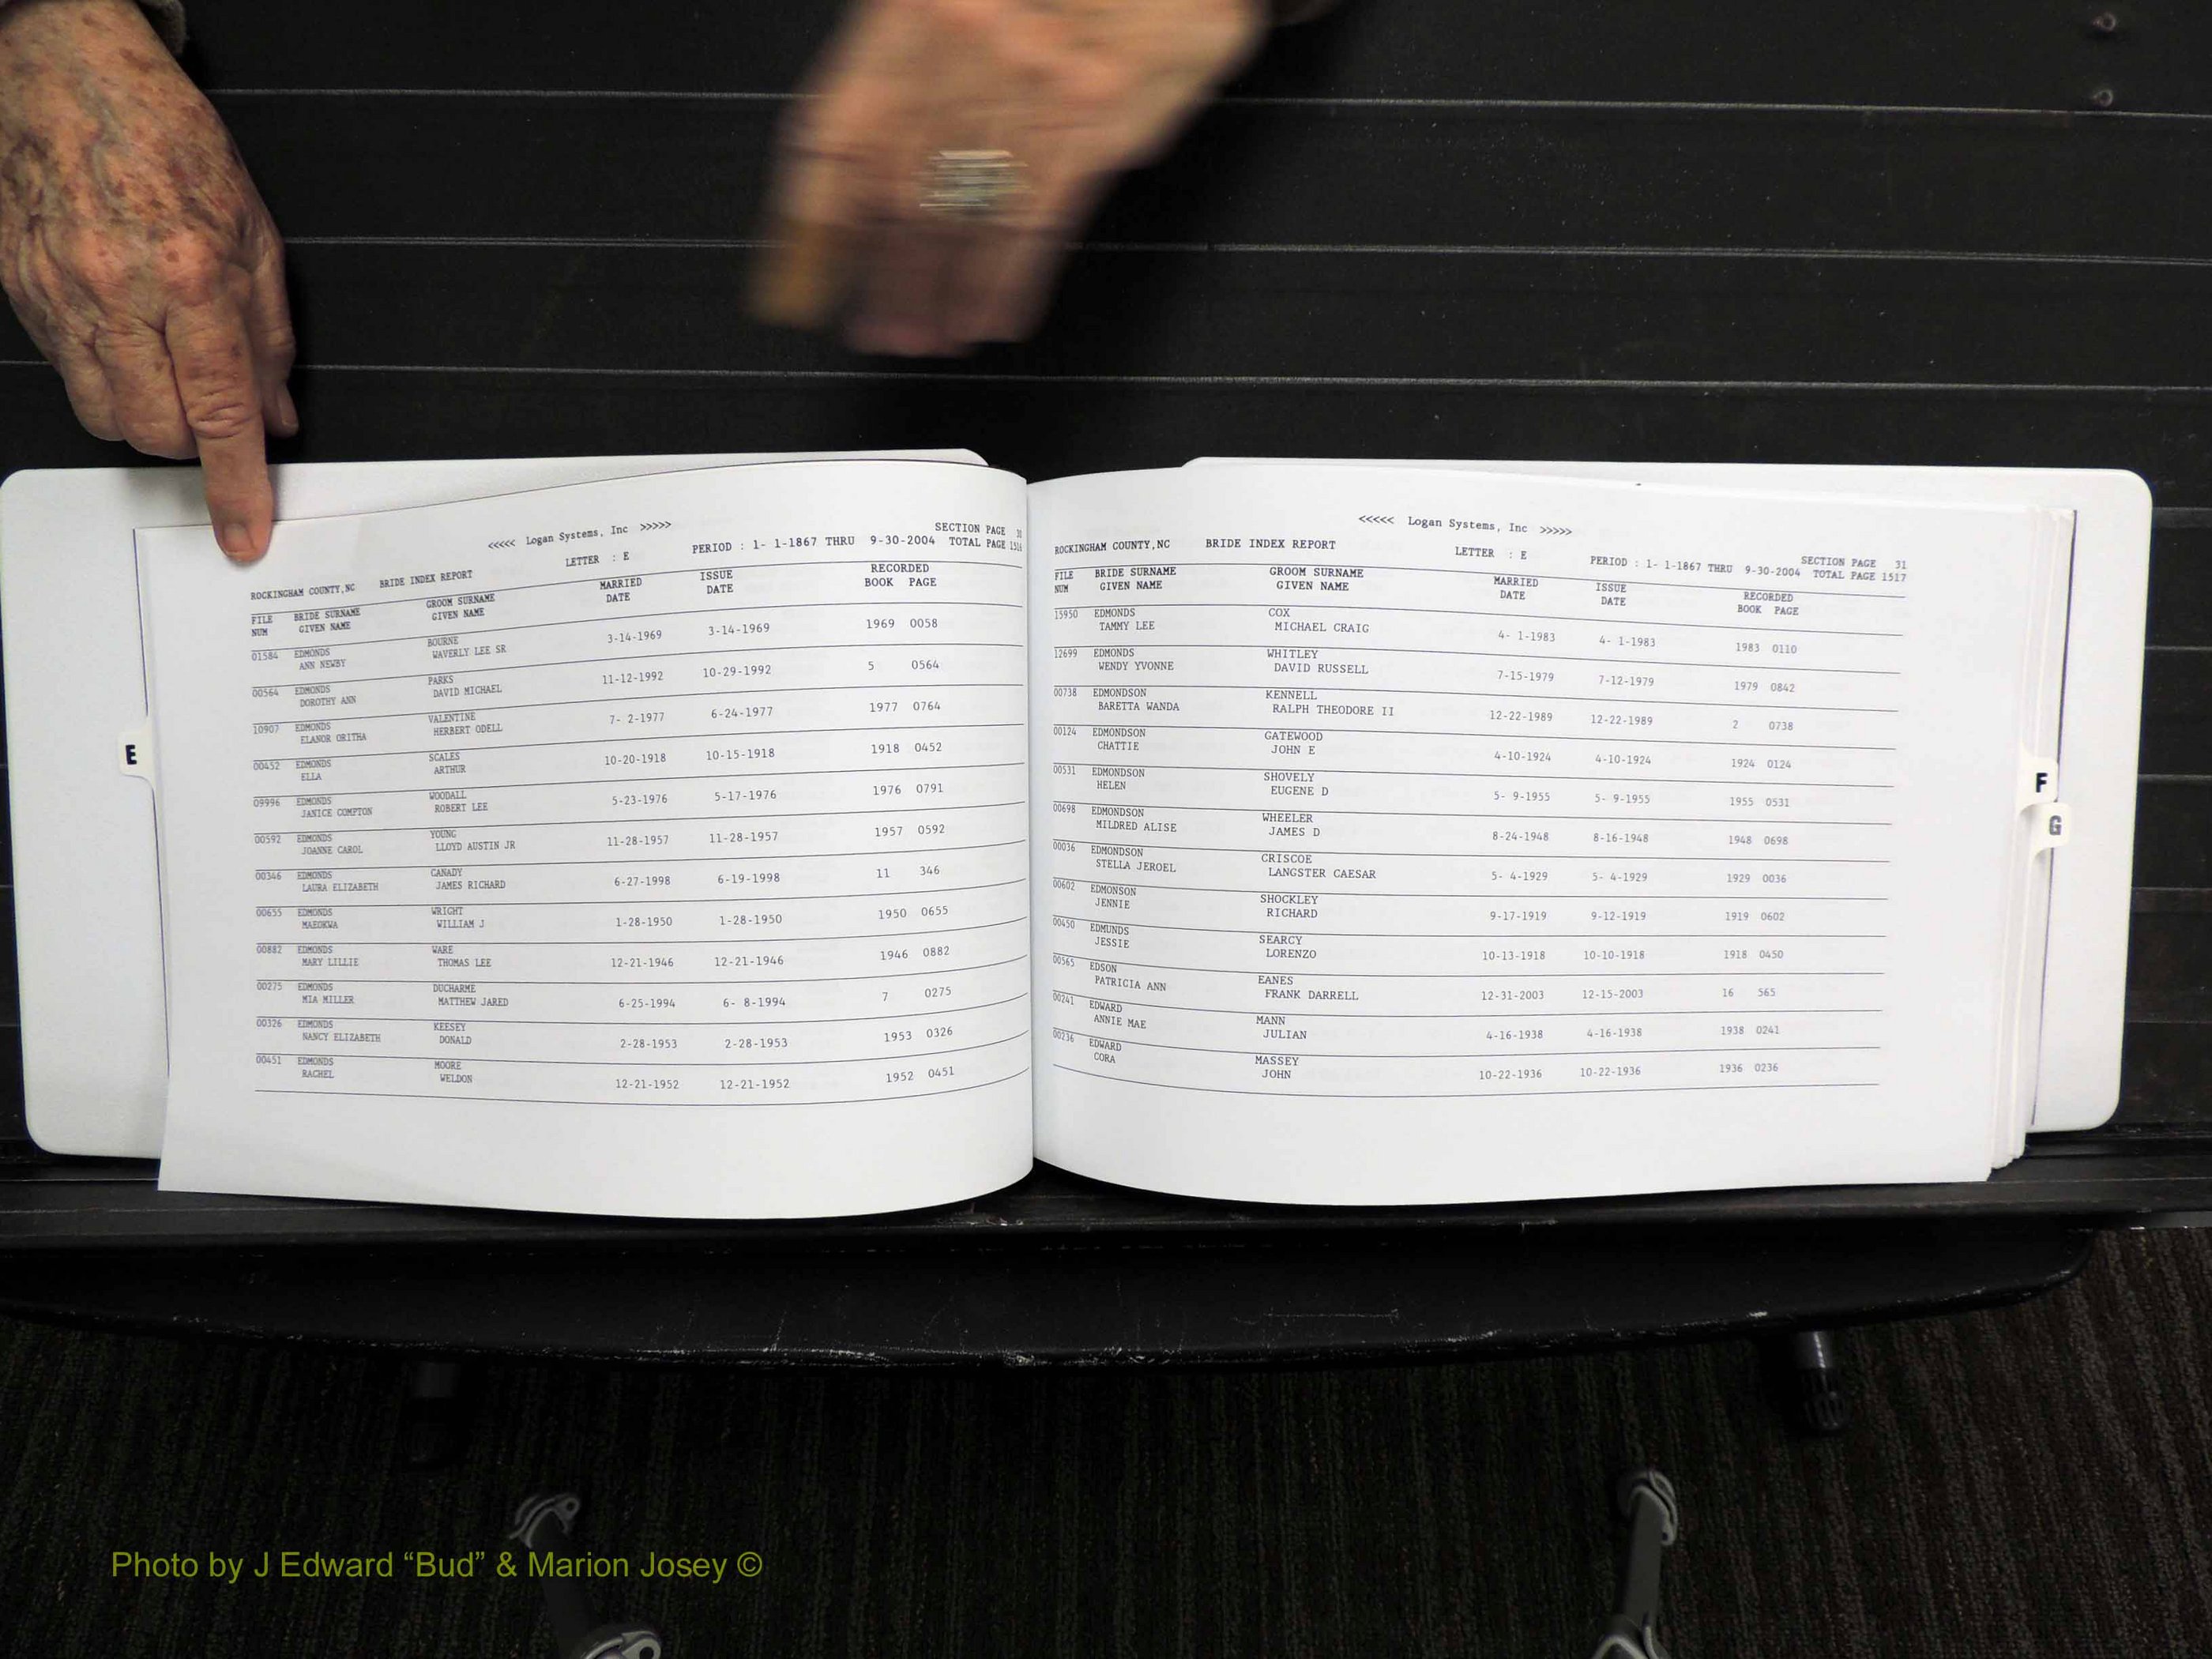 <<<<< Logan Systems, Inc >>>>>
SECTION PAGE 30
ROCKINGHAM COUNTY,NC BRIDE INDEX REPORT LETTER : E PERIOD : 1- 1-1867 THRU 9-30-2004 TOTAL PAGE 1516
FILE BRIDE SURNAME GROOM SURNAME MARRIED ISSUE RECORDED
NUM GIVEN NAME GIVEN NAME DATE DATE BOOK PAGE
01584 EDMONDS BOURNE
ANN NEWBY WAVERLY LEE SR 3-14-1969 3-14-1969 1969 0058
00564 EDMONDS PARKS
DOROTHY ANN DAVID MICHAEL 11-12-1992 10-29-1992 5 0564
10907 EDMONDS VALENTINE
ELANOR ORITHA HERBERT ODELL 7- 2-1977 6-24-1977 1977 0764
00452 EDMONDS SCALES
ELLA ARTHUR 10-20-1918 10-15-1918 1918 0452
09996 EDMONDS WOODALL
JANICE COMPTON ROBERT LEE 5-23-1976 5-17-1976 1976 0791
00592 EDMONDS YOUNG
JOANNE CAROL LLOYD AUSTIN JR 11-28-1957 11-28-1957 1957 0592
00346 EDMONDS CANADY
LAURA ELIZABETH JAMES RICHARD 6-27-1998 6-19-1998 11 346
00655 EDMONDS WRIGHT
MAEOKWA WILLIAM J 1-28-1950 1-28-1950 1950 0655
00882 EDMONDS WARE
MARY LILLIE THOMAS LEE 12-21-1946 12-21-1946 1946 0882
00275 EDMONDS DUCHARME
MIA MILLER MATTHEW JARED 6-25-1994 6- 8-1994 7 0275
00326 EDMONDS KEESEY
NANCY ELIZABETH DONALD 2-28-1953 2-28-1953 1953 0326
00451 EDMONDS MOORE
RACHEL WELDON 12-21-1952 12-21-1952 1952 0451
E
<<<<< Logan Systems, Inc >>>>>
SECTION PAGE 31
ROCKINGHAM COUNTY,NC BRIDE INDEX REPORT LETTER : E PERIOD : 1- 1-1867 THRU 9-30-2004 TOTAL PAGE 1517
FILE BRIDE SURNAME GROOM SURNAME MARRIED ISSUE RECORDED
NUM GIVEN NAME GIVEN NAME DATE DATE BOOK PAGE
15950 EDMONDS COX
TAMMY LEE MICHAEL CRAIG 4- 1-1983 4- 1-1983 1983 0110
12699 EDMONDS WHITLEY
WENDY YVONNE DAVID RUSSELL 7-15-1979 7-12-1979 1979 0842
00738 EDMONDSON KENNELL
BARETTA WANDA RALPH THEODORE II 12-22-1989 12-22-1989 2 0738
00124 EDMONDSON GATEWOOD
CHATTIE JOHN E 4-10-1924 4-10-1924 1924 0124
00531 EDMONDSON SHOVELY
HELEN EUGENE D 5- 9-1955 5- 9-1955 1955 0531
00698 EDMONDSON WHEELER
MILDRED ALISE JAMES D 8-24-1948 8-16-1948 1948 0698
00036 EDMONDSON CRISCOE
STELLA JEROEL LANGSTER CAESAR 5- 4-1929 5- 4-1929 1929 0036
00602 EDMONSON SHOCKLEY
JENNIE RICHARD 9-17-1919 9-12-1919 1919 0602
00450 EDMUNDS SEARCY
JESSIE LORENZO 10-13-1918 10-10-1918 1918 0450
00565 EDSON EANES
PATRICIA ANN FRANK DARRELL 12-31-2003 12-15-2003 16 565
00241 EDWARD MANN
ANNIE MAE JULIAN 4-16-1938 4-16-1938 1938 0241
00236 EDWARD MASSEY
CORA JOHN 10-22-1936 10-22-1936 1936 0236
F
G
Photo by J Edward “Bud” & Marion Josey ©